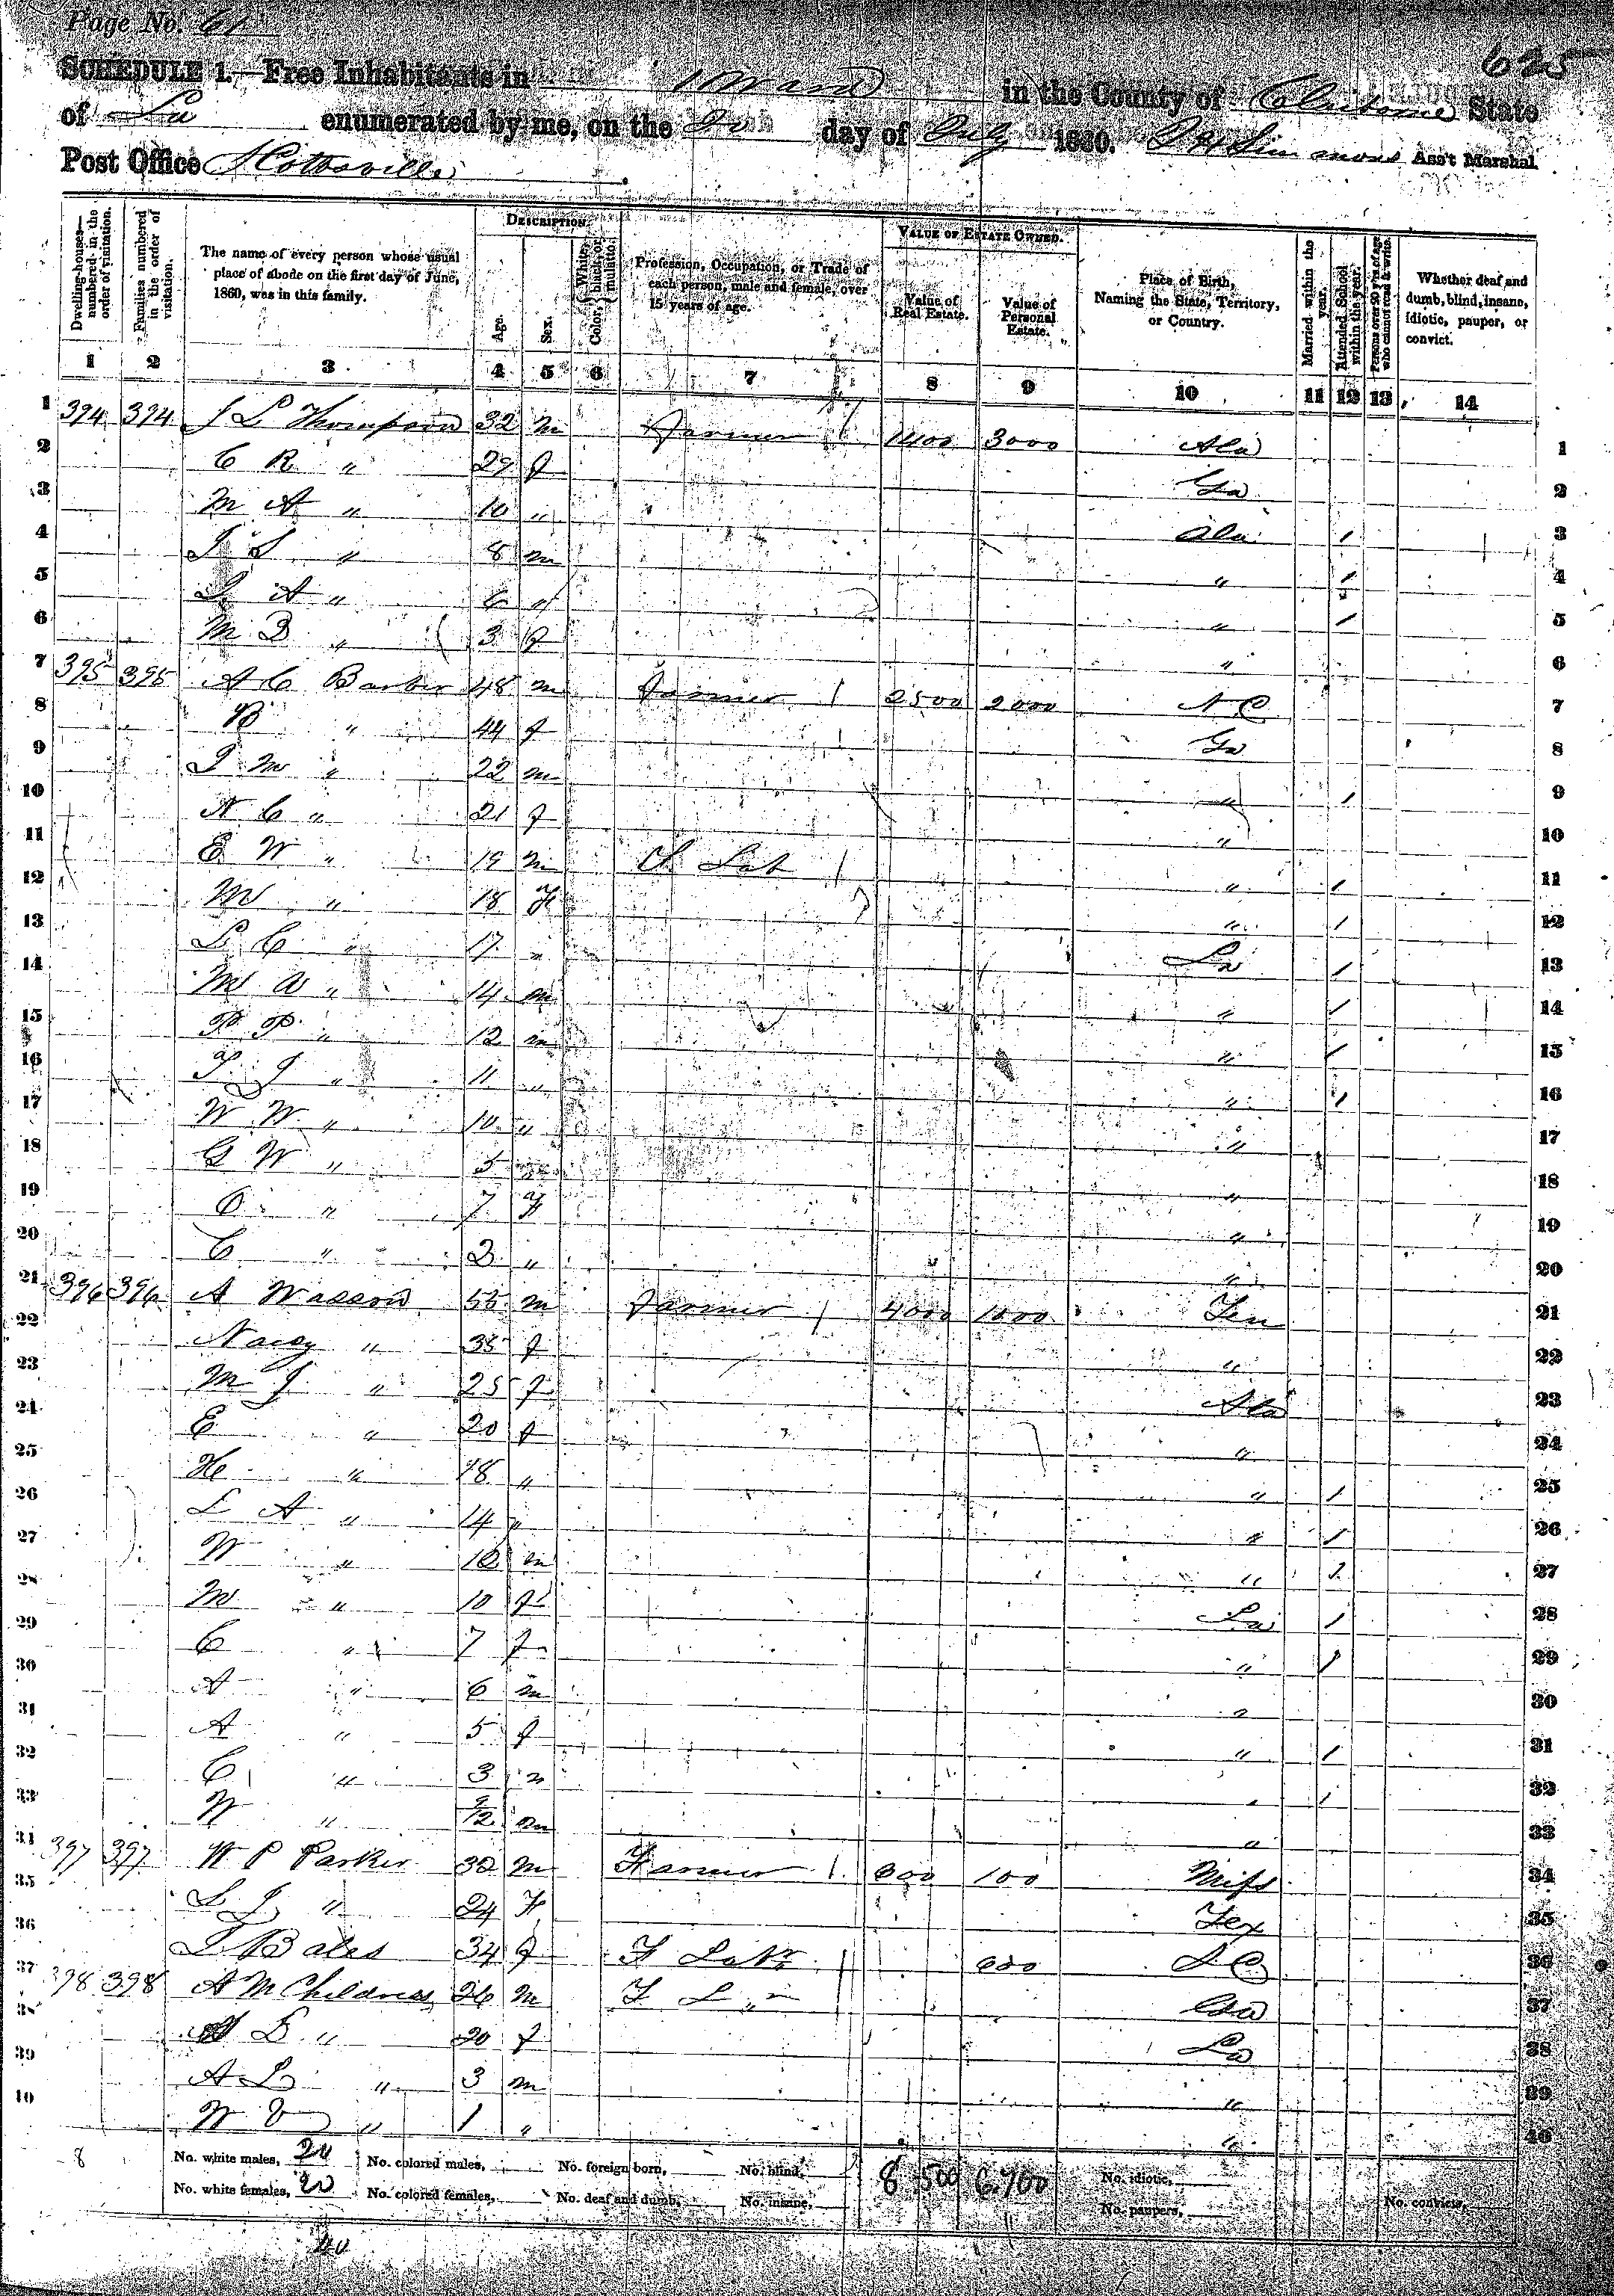 Page No. 61
625
SCHEDULE 1.—Free Inhabitants in 1 Ward in the County of Claiborne State
of La enumerated by me, on the day of July 1860. Simmons Ass't Marshal
Post Office Scottsville
Dwelling-houses—numbered in the order of visitation.
Families numbered in the order of visitation.
The name of every person whose usual place of abode on the first day of June, 1860, was in this family.
DESCRIPTION.
Age.
Sex.
Color, White, black, or mulatto.
Profession, Occupation, or Trade of each person, male and female, over 15 years of age.
VALUE OF ESTATE OWNED.
Value of Real Estate.
Value of Personal Estate.
Place of Birth, Naming the State, Territory, or Country.
Married within the year.
Attended School within the year.
Persons over 20 years of age who cannot read & write.
Whether deaf and dumb, blind, insane, idiotic, pauper, or convict.
1 2 3 4 5 6 7 8 9 10 11 12 13 14
1 394 394 J L Thompson 32 m Farmer 1 1400 3000 Ala 1
2 C R " 29 f Ga 2
3 M A " 10 " Ala / 3
4 J S " 8 m " / 4
5 A " 6 " " / 5
6 M B " 3 f " 6
7 395 395 A C Barber 48 m Farmer 1 2500 2000 N C 7
8 B " 44 f Ga 8
9 J M " 22 m " / 9
10 A C " 21 f " 10
11 E W " 19 m F Lab / " / 11
12 M " 18 F " / 12
13 L C " 17 " La / 13
14 M A " 14 m " / 14
15 P P " 12 m " / 15
16 J " 11 " " / 16
17 W W " 10 " " 17
18 G W " 5 " " 18
19 O " 7 F " 19
20 C " 3 " " 20
21 396 396 A Wasson 55 m Farmer 1 4000 1000 Ten 21
22 Nacy " 35 f " 22
23 M J " 25 f Ala 23
24 E " 20 f " 24
25 H " 18 " " / 25
26 L A " 14 " " / 26
27 W " 12 m " 1 27
28 M " 10 f La / 28
29 C " 7 f " / 29
30 A " 6 m " 30
31 A " 5 f " / 31
32 C " 3 " " / 32
33 W " /12 m " 33
34 397 397 W P Parker 32 m Farmer 1 600 100 Miss 34
35 L J " 24 F Tex 35
36 Bales 34 f F Labr 600 S C 36
37 398 398 A M Childress 26 M F L " Ga 37
38 L " 20 f La 38
39 A L " 3 m " 39
40 W " 1 " " 40
8 No. white males, 20 No. colored males, No. foreign born, No. blind, 8 500 6,700 No. idiotic,
No. white females, 20 No. colored females, No. deaf and dumb, No. insane, No. paupers, No. convicts,
40